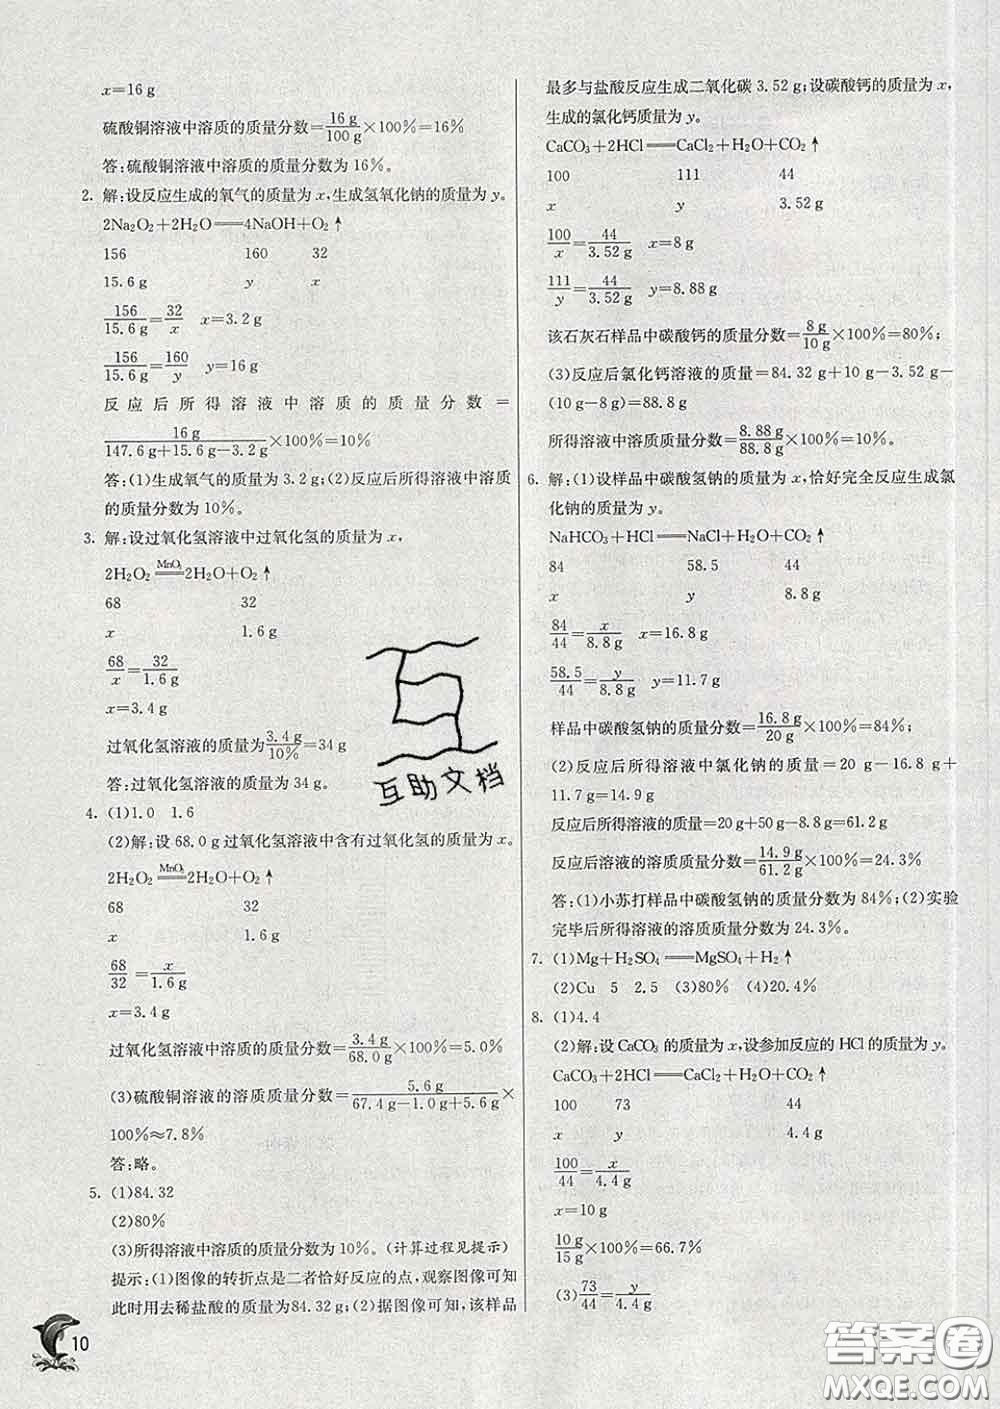 x=16 g
硫酸铜溶液中溶质的质量分数=16 g/100 g×100%=16%
答:硫酸铜溶液中溶质的质量分数为16%。
2. 解:设反应生成的氧气的质量为x,生成氢氧化钠的质量为y。
2Na₂O₂+2H₂O══4NaOH+O₂↑
156 160 32
15.6 g y x
156/15.6 g=32/x x=3.2 g
156/15.6 g=160/y y=16 g
反应后所得溶液中溶质的质量分数=
16 g/(147.6 g+15.6 g-3.2 g)×100%=10%
答:(1)生成氧气的质量为3.2 g;(2)反应后所得溶液中溶质
的质量分数为10%。
3. 解:设过氧化氢溶液中过氧化氢的质量为x,
2H₂O₂ ══MnO₂══ 2H₂O+O₂↑
68 32
x 1.6 g
68/x=32/1.6 g
x=3.4 g
过氧化氢溶液的质量为3.4 g/10%=34 g
答:过氧化氢溶液的质量为34 g。
4. (1)1.0 1.6
(2)解:设68.0 g过氧化氢溶液中含有过氧化氢的质量为x。
2H₂O₂ ══MnO₂══ 2H₂O+O₂↑
68 32
x 1.6 g
68/32=x/1.6 g
x=3.4 g
过氧化氢溶液中溶质的质量分数=3.4 g/68.0 g×100%=5.0%
(3)硫酸铜溶液的溶质质量分数=5.6 g/(67.4 g-1.0 g+5.6 g)×
100%≈7.8%
答:略。
5. (1)84.32
(2)80%
(3)所得溶液中溶质的质量分数为10%。(计算过程见提示)
提示:(1)图像的转折点是二者恰好反应的点,观察图像可知
此时用去稀盐酸的质量为84.32 g;(2)据图像可知,该样品
10
最多与盐酸反应生成二氧化碳3.52 g;设碳酸钙的质量为x,
生成的氯化钙质量为y。
CaCO₃+2HCl══CaCl₂+H₂O+CO₂↑
100 111 44
x y 3.52 g
100/x=44/3.52 g x=8 g
111/y=44/3.52 g y=8.88 g
该石灰石样品中碳酸钙的质量分数=8 g/10 g×100%=80%;
(3)反应后氯化钙溶液的质量=84.32 g+10 g-3.52 g-
(10 g-8 g)=88.8 g
所得溶液中溶质质量分数=8.88 g/88.8 g×100%=10%。
6. 解:(1)设样品中碳酸氢钠的质量为x,恰好完全反应生成氯
化钠的质量为y。
NaHCO₃+HCl══NaCl+H₂O+CO₂↑
84 58.5 44
x y 8.8 g
84/44=x/8.8 g x=16.8 g
58.5/44=y/8.8 g y=11.7 g
样品中碳酸氢钠的质量分数=16.8 g/20 g×100%=84%;
(2)反应后所得溶液中氯化钠的质量=20 g-16.8 g+
11.7 g=14.9 g
反应后所得溶液的质量=20 g+50 g-8.8 g=61.2 g
反应后溶液的溶质质量分数=14.9 g/61.2 g×100%=24.3%
答:(1)小苏打样品中碳酸氢钠的质量分数为84%;(2)实验
完毕后所得溶液的溶质质量分数为24.3%。
7. (1)Mg+H₂SO₄══MgSO₄+H₂↑
(2)Cu 5 2.5 (3)80% (4)20.4%
8. (1)4.4
(2)解:设CaCO₃的质量为x,设参加反应的HCl的质量为y。
CaCO₃+2HCl══CaCl₂+H₂O+CO₂↑
100 73 44
x y 4.4 g
100/44=x/4.4 g
x=10 g
10 g/15 g×100%=66.7%
(3)73/44=y/4.4 g
互助文档
答案圈
MXQE.COM